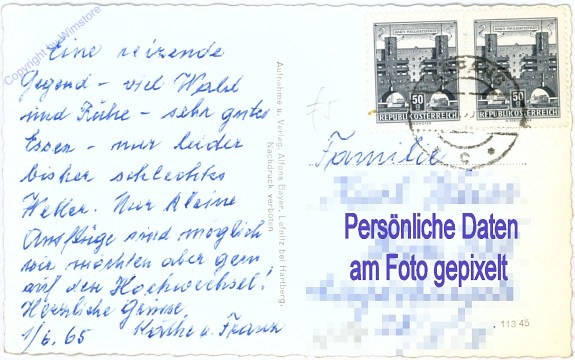 Copyright by Winstore
Eine reizende
Gegend – viel Wald
und Ruhe – sehr gutes
Essen – nur leider
bisher schlechtes
Wetter. Nur kleine
Ausflüge sind möglich
wir möchten aber gern
auf den Hochwechsel!
Herzliche Grüsse,
1/6.65 Käthe u. Franz
Aufnahme u. Verlag: Alfons Bayer, Lafnitz bei Hartberg.
Nachdruck verboten
50
REPUBLIK ÖSTERREICH
50
REPUBLIK ÖSTERREICH
Familie
Persönliche Daten
am Foto gepixelt
113 45